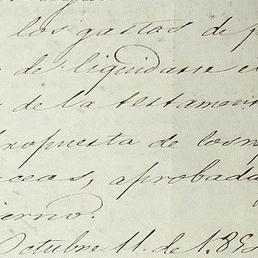 los gastos de
de liquidarse
de la testamen
ropuesta de los
ceas, aprobada
ierno.
Octubre 11. de 1.85